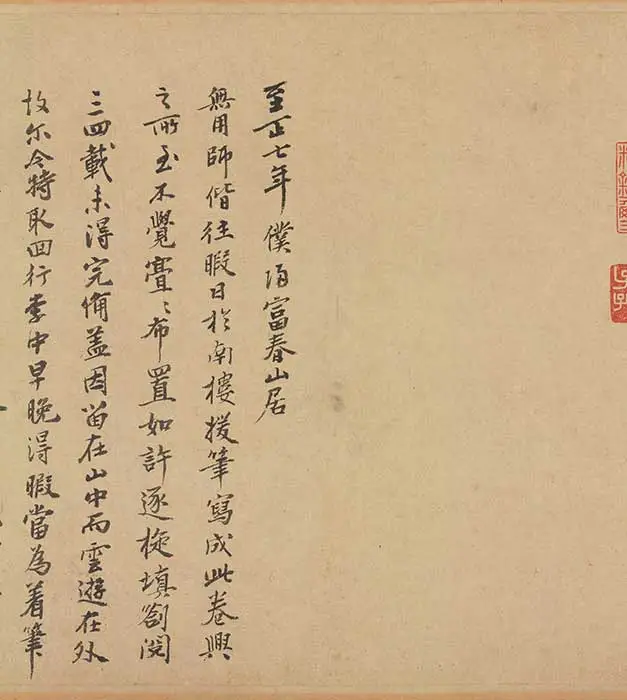 至正七年僕歸富春山居
無用師偕往暇日於南樓援筆寫成此卷興
之所至不覺亹〻布置如許逐旋填劄閱
三四載未得完備盖因留在山中而雲遊在外
故尔今特取回行李中早晚得暇當為着筆